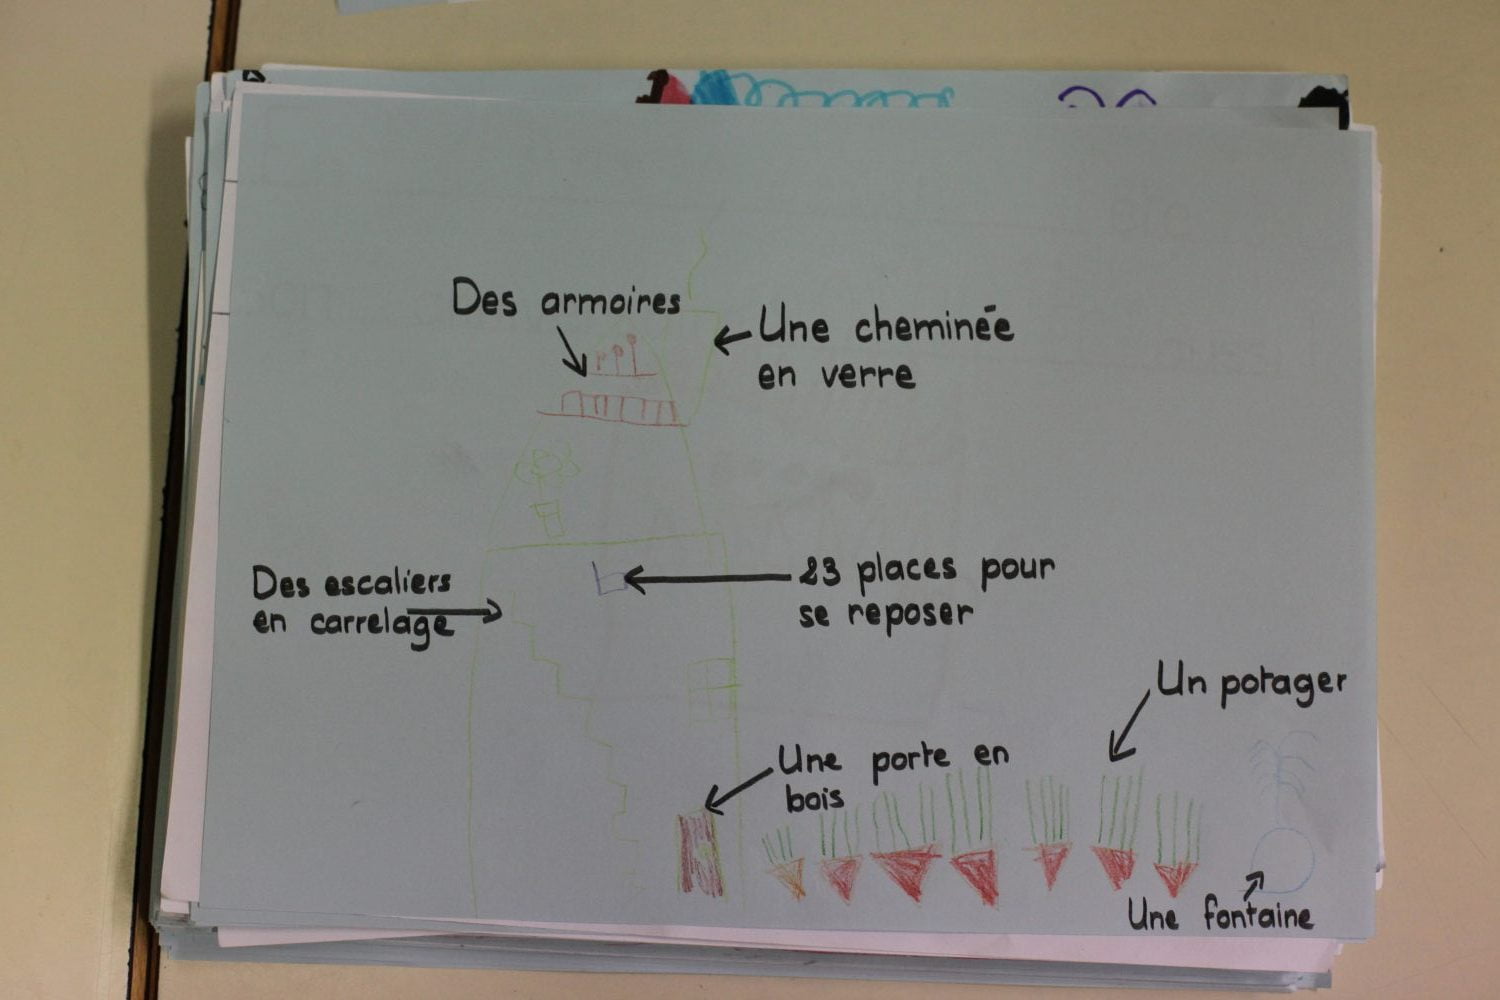 Des armoires
Une cheminée
en verre
Des escaliers
en carrelage
23 places pour
se reposer
Un potager
Une porte en
bois
Une fontaine